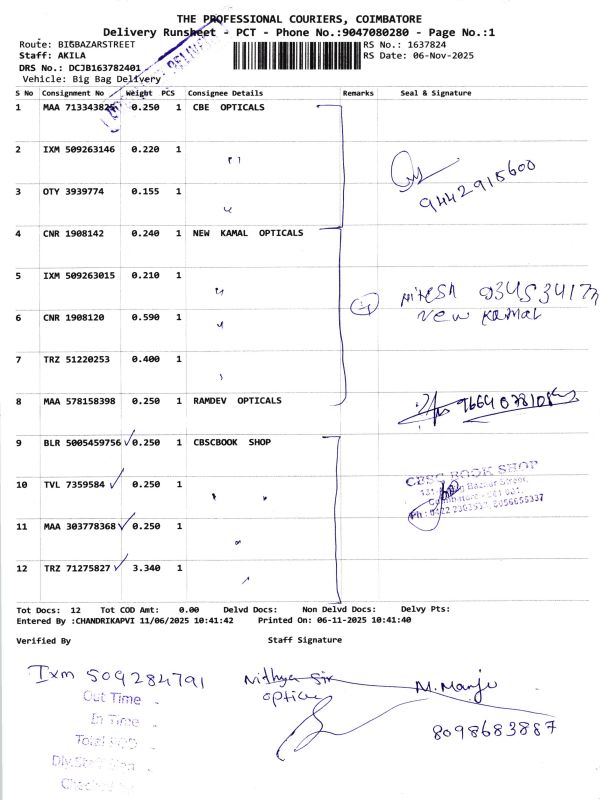 THE PROFESSIONAL COURIERS, COIMBATORE
Delivery Runsheet - PCT - Phone No.:9047080280 - Page No.:1
Route: BIGBAZARSTREET
RS No.: 1637824
Staff: AKILA
RS Date: 06-Nov-2025
DRS No.: DCJB163782401
Vehicle: Big Bag Delivery
S No Consignment No Weight PCS Consignee Details Remarks Seal & Signature
1 MAA 0.250 1 CBE OPTICALS
2 IXM 509263146 0.220 1 "
9442915600
3 OTY 3939774 0.155 1 "
4 CNR 1908142 0.240 1 NEW KAMAL OPTICALS
5 IXM 509263015 0.210 1 "
4 NITESH
New Kamal
6 CNR 1908120 0.590 1 "
7 TRZ 51220253 0.400 1
8 MAA 578158398 0.250 1 RAMDEV OPTICALS
9 BLR 5005459756 ✓ 0.250 1 CBSCBOOK SHOP
10 TVL 7359584 ✓ 0.250 1 "
CBSC BOOK SHOP
131, Big Bazaar Street,
Coimbatore - 641 001.
11 MAA 303778368 ✓ 0.250 1 "
12 TRZ 71275827 ✓ 3.340 1 "
Tot Docs: 12 Tot COD Amt: 0.00 Delvd Docs: Non Delvd Docs: Delvy Pts:
Entered By :CHANDRIKAPVI 11/06/2025 10:41:42 Printed On: 06-11-2025 10:41:40
Verified By Staff Signature
Ixm 509284791
Nithya Sir
optics
M. Manju
8098683887
Out Time
In Time
Total POD